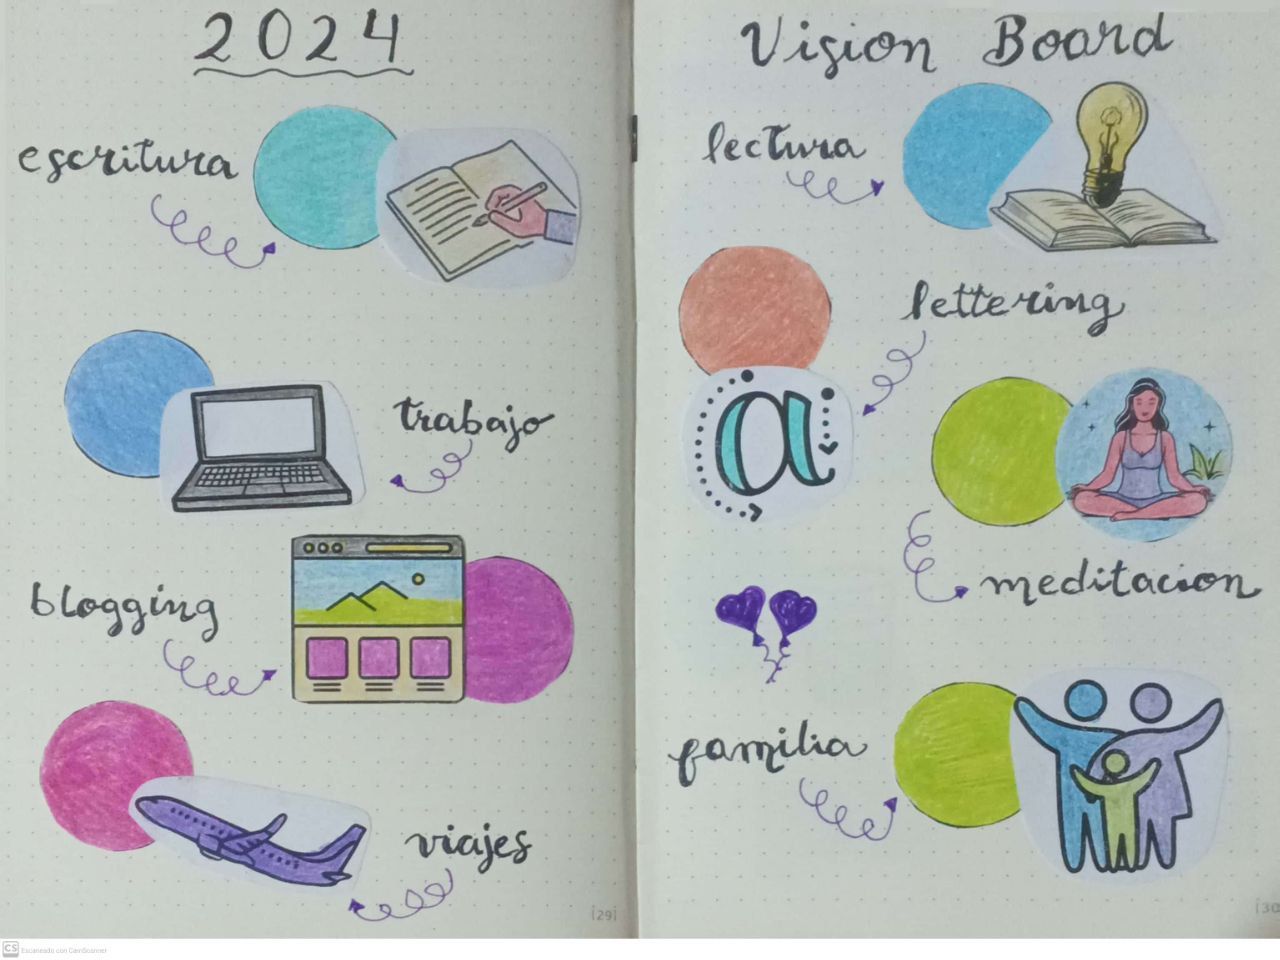 2024
escritura
trabajo
blogging
viajes
[29]
Vision Board
lectura
lettering
a
meditacion
familia
[30
CS Escaneado con CamScanner